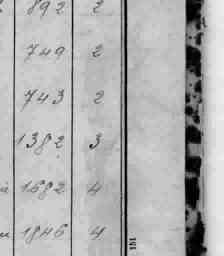 892 2
749 2
743 2
1382 3
1682 4
1846 4
151